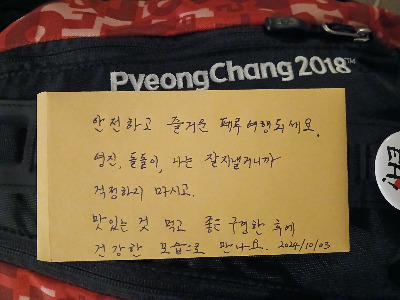 PyeongChang 2018™
안전하고 즐거운 페루여행되세요.
영진, 돌돌이, 나는 잘지낼거니까
걱정하지 마시고.
맛있는 것 먹고 좋은 구경한 후에
건강한 모습으로 만나요. 2024/10/03